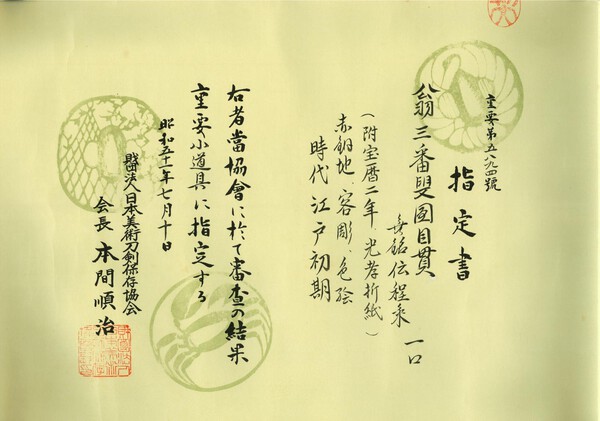 重要第五八九四號
指定書
翁三番叟図目貫
無銘伝程乗 一口
(附宝暦二年光孝折紙)
赤銅地、容彫、色絵
時代江戸初期
右者當協會に於て審査の結果
重要小道具に指定する
昭和五十一年七月十日
財団法人日本美術刀剣保存協会
会長 本間順治